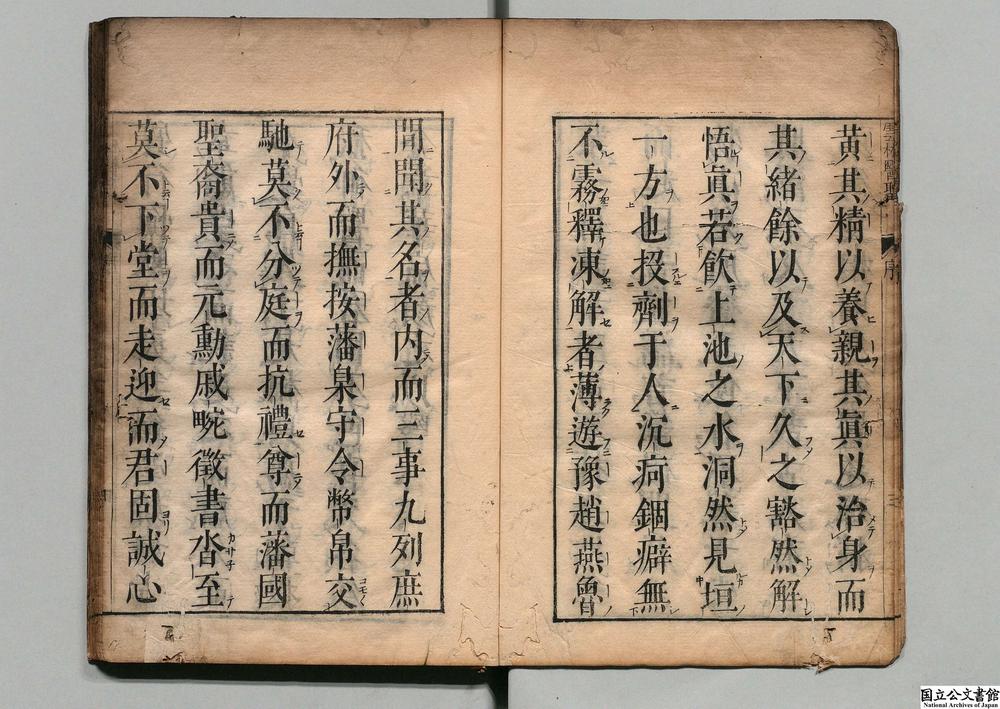 黄其精以養親其眞以治身而
其緒餘以及天下久之豁然解
悟眞若飲上池之水洞然見垣
一方也投劑于人沉疴錮癖無
不霧釋凍解者薄遊豫趙燕魯
序
三
間聞其名者内而三事九列庶
府外而撫按藩臬守令幣帛交
馳莫不分庭而抗禮尊而藩國
聖裔貴而元勳戚畹徵書沓至
莫不下堂而走迎而君固誠心
国立公文書館
National Archives of Japan